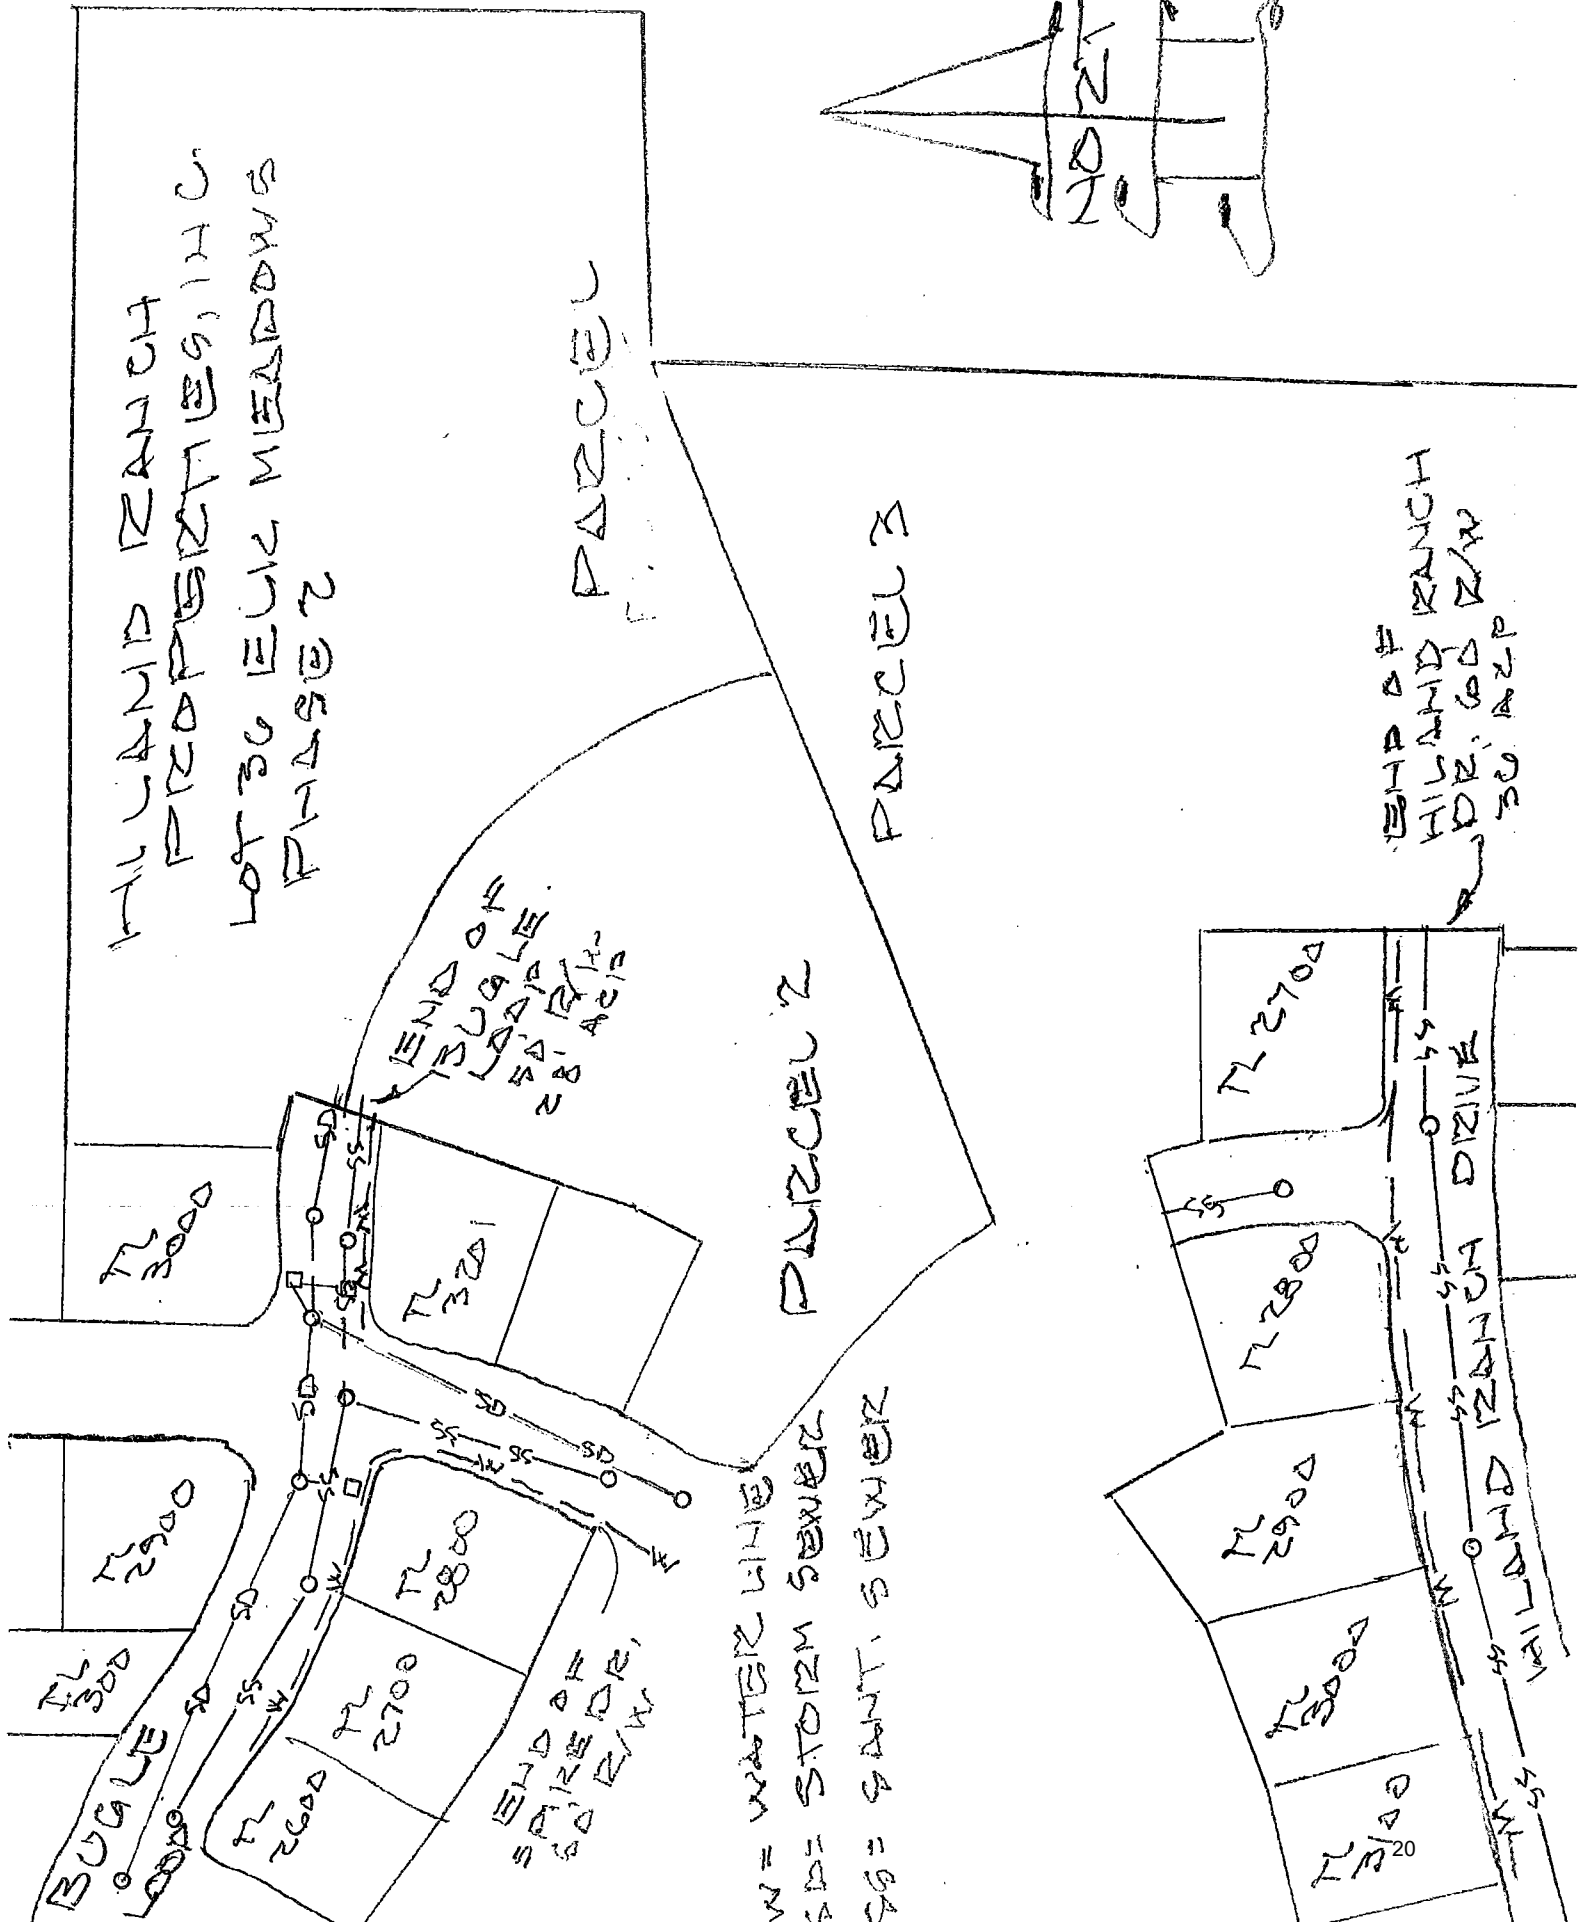 HILAND RANCH
PROPERTIES, INC
LOT 36 ELK MEADOWS
PHASE 2
PARCEL
PARCEL 3
PARCEL 2
END OF
BUGLE
LOOP
50' R/W
28' ACP
END OF
HILAND RANCH
DR. 60' R/W
36' ACP
TL
3000
TL
3201
TL
2900
TL
300
TL
2800
TL
2700
TL
2600
BUGLE
LOOP
END OF
SPIRE DR.
50' R/W
W = WATER LINE
SD = STORM SEWER
SS = SANT. SEWER
TL 2700
TL 2800
TL
2900
TL
3000
TL
3100
HILAND RANCH DRIVE
SD
SS
W
SD
SD
SS
SD
SS
SD
SS
W
SS
SD
W
SD
SS
W
W
SS
SS
W
SS
W
SS
W
SS
W
SS
20